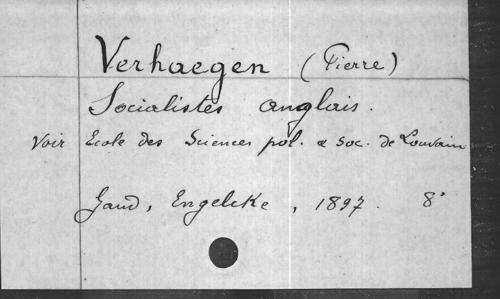 Verhaegen (Pierre)
Socialistes anglais.
Voir Ecole des Sciences pol. & soc. de Louvain
Gand, Engelcke, 1897. 8°